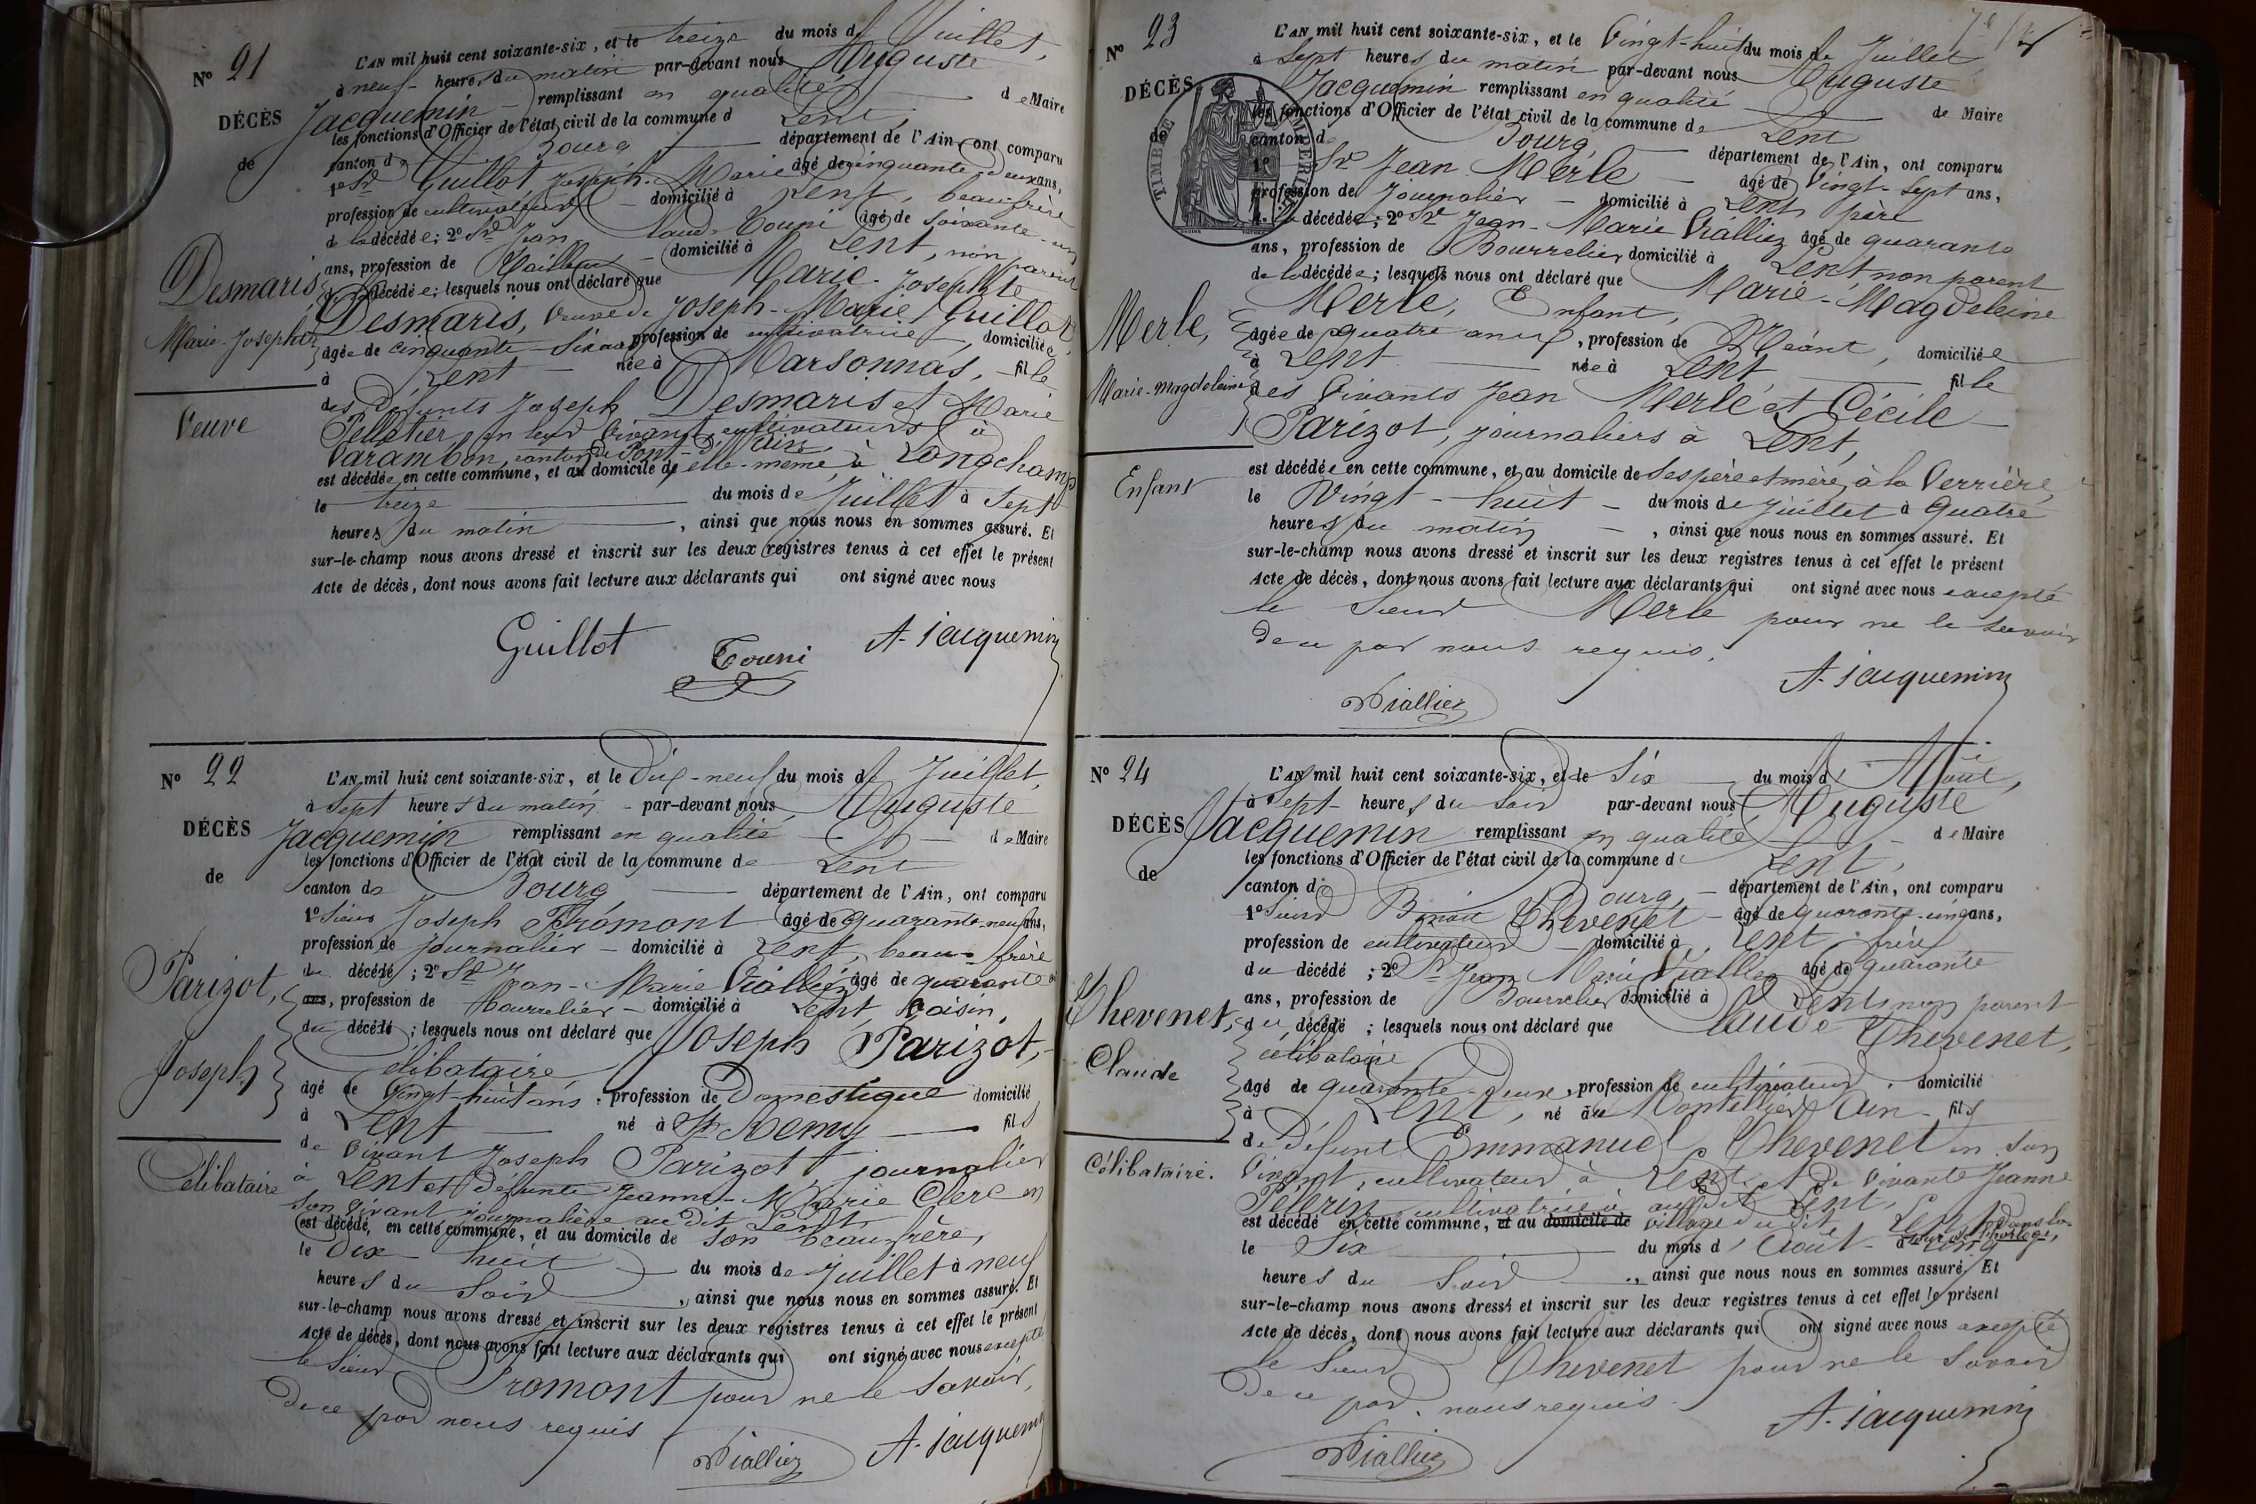 N° 21
DÉCÈS
de
Desmaris
Marie-Josephte
Veuve
L'AN mil huit cent soixante-six, et le treize du mois de Juillet,
à neuf heures du matin par-devant nous Auguste
Jacquemin remplissant en qualité de Maire
les fonctions d'Officier de l'état civil de la commune d Lent,
canton de Bourg département de l'Ain, ont comparu
1° Sr Guillot, Joseph-Marie âgé de cinquante deux ans,
profession de cultivateur domicilié à Lent, beau-frère
d la décédée; 2° Sr Jean Claude Touni âgé de soixante-un
ans, profession de domicilié à Lent, non parent
d la décédée; lesquels nous ont déclaré que Marie-Josephte
Desmaris, Veuve de Joseph-Marie Guillot,
âgée de cinquante-six ans profession de cultivatrice, domiciliée
à Lent née à Marsonnas, fille
des défunts Joseph Desmaris et Marie
Pelletier, en leur vivant cultivateurs à
Varambon, canton de Pont-d'Ain,
est décédée en cette commune, et au domicile de elle-même, à Longchamp
le treize du mois de Juillet à Sept
heures du matin, ainsi que nous nous en sommes assuré. Et
sur-le-champ nous avons dressé et inscrit sur les deux registres tenus à cet effet le présent
Acte de décès, dont nous avons fait lecture aux déclarants qui ont signé avec nous
Guillot Touni A. Jacquemin
N° 22
DÉCÈS
de
Parizot,
Joseph
Célibataire
L'AN mil huit cent soixante-six, et le Dix-neuf du mois de Juillet,
à Sept heures du matin par-devant nous Auguste
Jacquemin remplissant en qualité de Maire
les fonctions d'Officier de l'état civil de la commune de Lent
canton de Bourg département de l'Ain, ont comparu
1° Sieur Joseph Fromont âgé de quarante-neuf ans,
profession de journalier domicilié à Lent, beau-frère
du décédé; 2° Sr Jean-Marie Vialliez âgé de quarante
ans, profession de Bourrelier domicilié à Lent, voisin,
du décédé; lesquels nous ont déclaré que Joseph Parizot,
célibataire
âgé de Vingt-huit ans, profession de Domestique domicilié
à Lent né à St Remy fils
de vivant Joseph Parizot, journalier
à Lent et défunte Jeanne-Marie Clerc en
son vivant journalière au dit Lent
est décédé, en cette commune, et au domicile de son beau-frère,
le Dix huit du mois de Juillet à neuf
heures du Soir, ainsi que nous nous en sommes assuré. Et
sur-le-champ nous avons dressé et inscrit sur les deux registres tenus à cet effet le présent
Acte de décès, dont nous avons fait lecture aux déclarants qui ont signé avec nous excepté
le Sieur Fromont pour ne le savoir,
de ce par nous requis
Vialliez A. Jacquemin
N° 23
DÉCÈS
de
TIMBRE IMPERIAL
Merle,
Marie-Magdeleine
Enfant
L'AN mil huit cent soixante-six, et le Vingt-huit du mois de Juillet
à Sept heures du matin par-devant nous Auguste
Jacquemin remplissant en qualité de Maire
les fonctions d'Officier de l'état civil de la commune de Lent
canton d Bourg, département de l'Ain, ont comparu
1° Sr Jean Merle âgé de Vingt-Sept ans,
profession de Journalier domicilié à Lent, père
de la décédée; 2° Sr Jean-Marie Vialliez âgé de quarante
ans, profession de Bourrelier domicilié à Lent non parent
de la décédée; lesquels nous ont déclaré que Marie-Magdeleine
Merle, Enfant,
âgée de quatre ans, profession de Néant, domiciliée
à Lent née à Lent fille
des Vivants Jean Merle et Cécile
Parizot, journaliers à Lent,
est décédée en cette commune, et au domicile de Ses père et mère, à la Verrière,
le Vingt-huit du mois de Juillet à Quatre
heures du matin, ainsi que nous nous en sommes assuré. Et
sur-le-champ nous avons dressé et inscrit sur les deux registres tenus à cet effet le présent
Acte de décès, dont nous avons fait lecture aux déclarants qui ont signé avec nous excepté
le Sieur Merle pour ne le savoir
de ce par nous requis.
Vialliez A. Jacquemin
N° 24
DÉCÈS
de
Thevenet,
Claude
Célibataire.
L'AN mil huit cent soixante-six, et le Six du mois d'Août,
à Sept heures du Soir par-devant nous Auguste
Jacquemin remplissant en qualité de Maire
les fonctions d'Officier de l'état civil de la commune de Lent,
canton de Bourg, département de l'Ain, ont comparu
1° Sieur Benoit Thevenet âgé de quarante-cinq ans,
profession de cultivateur domicilié à Lent frère
du décédé; 2° Sr Jean Marie Vialliez âgé de quarante
ans, profession de Bourrelier domicilié à Lent non parent
du décédé; lesquels nous ont déclaré que Claude Thevenet,
célibataire
âgé de quarante-deux, profession de cultivateur, domicilié
à Lent, né au Montellier Ain fils
de Défunt Emmanuel Thevenet en son
Vivant, cultivateur à Lent et de Vivante Jeanne
Pellerin cultivatrice à audit Lent,
est décédé en cette commune, et au domicile de village du dit Lent
le Six du mois d'Août à cinq
heures du Soir, ainsi que nous nous en sommes assuré. Et
sur-le-champ nous avons dressé et inscrit sur les deux registres tenus à cet effet le présent
Acte de décès, dont nous avons fait lecture aux déclarants qui ont signé avec nous excepté
le Sieur Thevenet pour ne le savoir
de ce par nous requis.
Vialliez A. Jacquemin